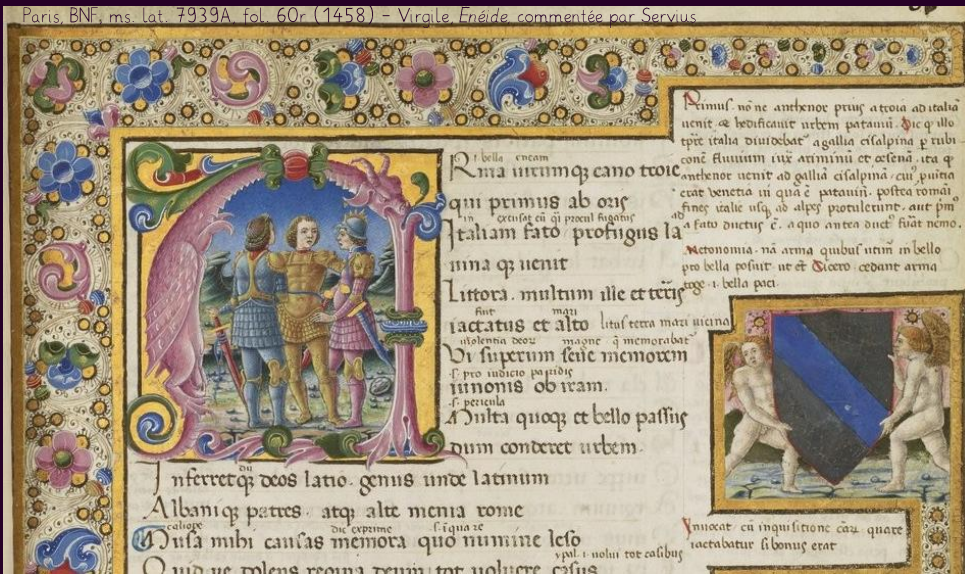 Paris, BNF, ms. lat. 7939A, fol. 60r (1458) – Virgile, Enéide, commentée par Servius
.i. bella eneam
Rma uirumqꝫ cano troie
qui primus ab oris
Italiam fato profugus la
uina qꝫ uenit
Littora . multum ille et terris
fuit mari
iactatus et alto litus terra mari uicina
uiolentia deoꝝ
Vi superum seue memorem
.s. pro iudicio paridis
iunonis ob iram.
.s. pericula
Multa quoqꝫ et bello passus
dum conderet urbem.
Inferretqꝫ deos latio . genus unde latinum
Albani qꝫ patres . atqꝫ alte menia rome
caliope dic exprime
Musa mihi causas memora quo numine leso
Quidue dolens regina deum tot uoluere casus
Primus . nōne anthenor prius a troia ad italiā
uenit et hedificauit urbem patauiū. Dic qꝫ illo
tp̄re italia diuidebat᷑ a gallia cisalpina ꝑ rubi
conē fluuium iux᷑ ariminū et cesenā. ita qꝫ
anthenor uenit ad galliā cisalpinā
erat uenetia in qua ē patauiū. postea romāi
fines italie usqꝫ ad alpes protulerunt. aut
a fato ductus ē. a quo antea duct᷑ fuāt nemo.
Metonomia. nā arma quibus utim᷑ in bello
pro bella posuit. ut et Cicero. cedant arma
toge .i. bella paci.
Inuocat cū inquisitione quare
iactabatur si bonus erat